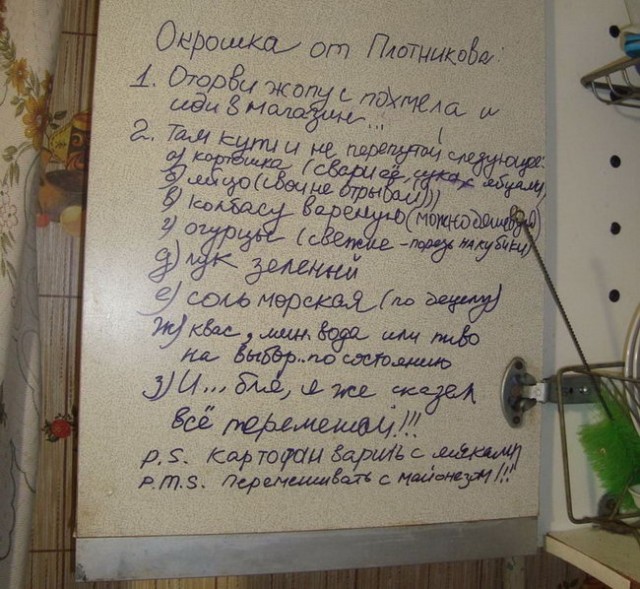 Окрошка от Плотникова:
1. Оторви жопу с похмела и
иди в магазин...
2. Там купи и не перепутай следующее:
а) картошка (свари её, сука, с яйцами)
б) яйцо (свои не отрывай)))
в) колбасу вареную (можно дешевую)
г) огурцы (свежие - порежь на кубики)
д) лук зеленый
е) соль морская (по децелу)
ж) квас, мин. вода или пиво
на выбор.. по состоянию
з) И... бля, я же сказал
всё перемешай!!!
p.s. картофан варить с яйками
p.m.s. перемешивать с майонезом!!!